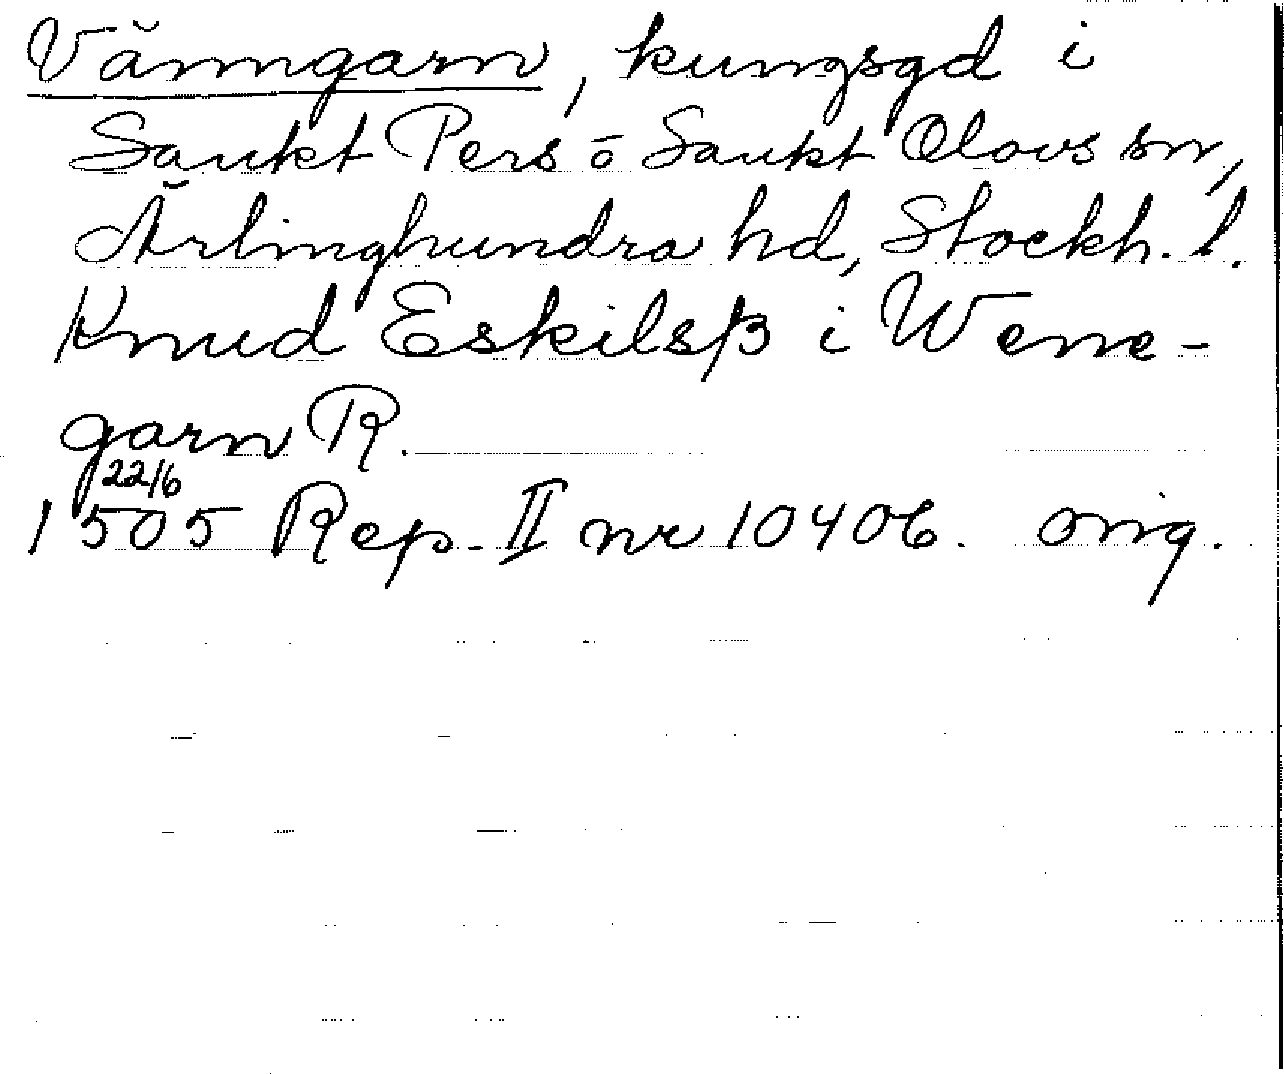 Vänngarn, kungsgd i
Sankt Pers o Sankt Olovs snr,
Ärlinghundra hd, Stockh. l.
Knud Eskilsß i Wenne-
garn R.
22/6
1505 Rep. II nr 10406. orig.